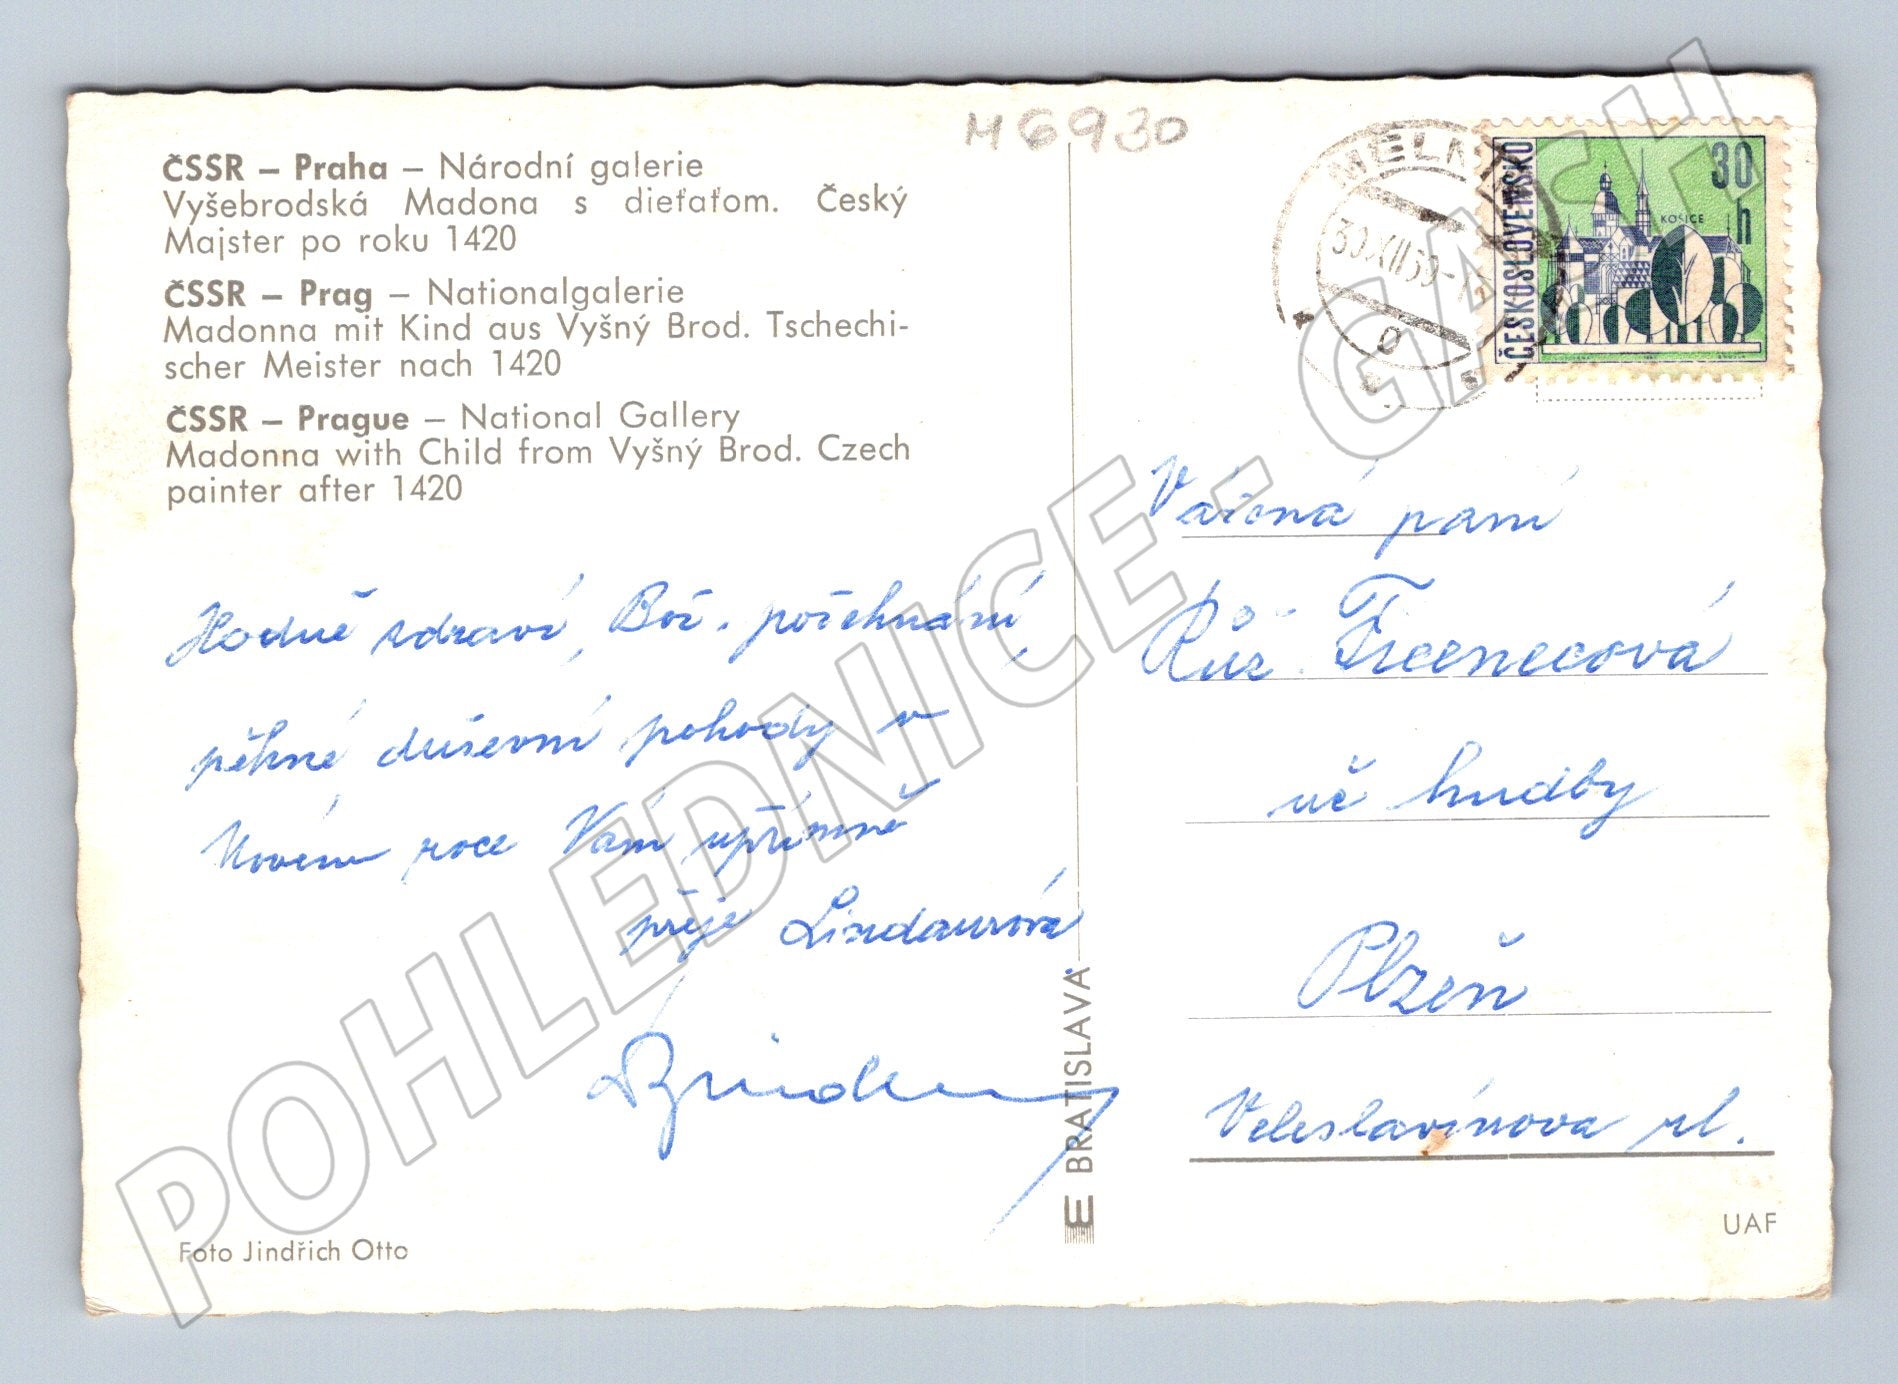 M6930
ČSSR – Praha – Národní galerie
Vyšebrodská Madona s dieťaťom. Český
Majster po roku 1420
ČSSR – Prag – Nationalgalerie
Madonna mit Kind aus Vyšný Brod. Tschechi-
scher Meister nach 1420
ČSSR – Prague – National Gallery
Madonna with Child from Vyšný Brod. Czech
painter after 1420
ČESKOSLOVENSKO
30
h
KOŠICE
30.XII.69
Hodně zdraví, Bož. požehnání
pěkné duševní pohody v
Novém roce Vám upřímně
přeje Lindaurová
Vážená paní
Růž.
uč hudby
Plzeň
Veleslavínova ul.
E BRATISLAVA
Foto Jindřich Otto
UAF
POHLEDNICE - GASH